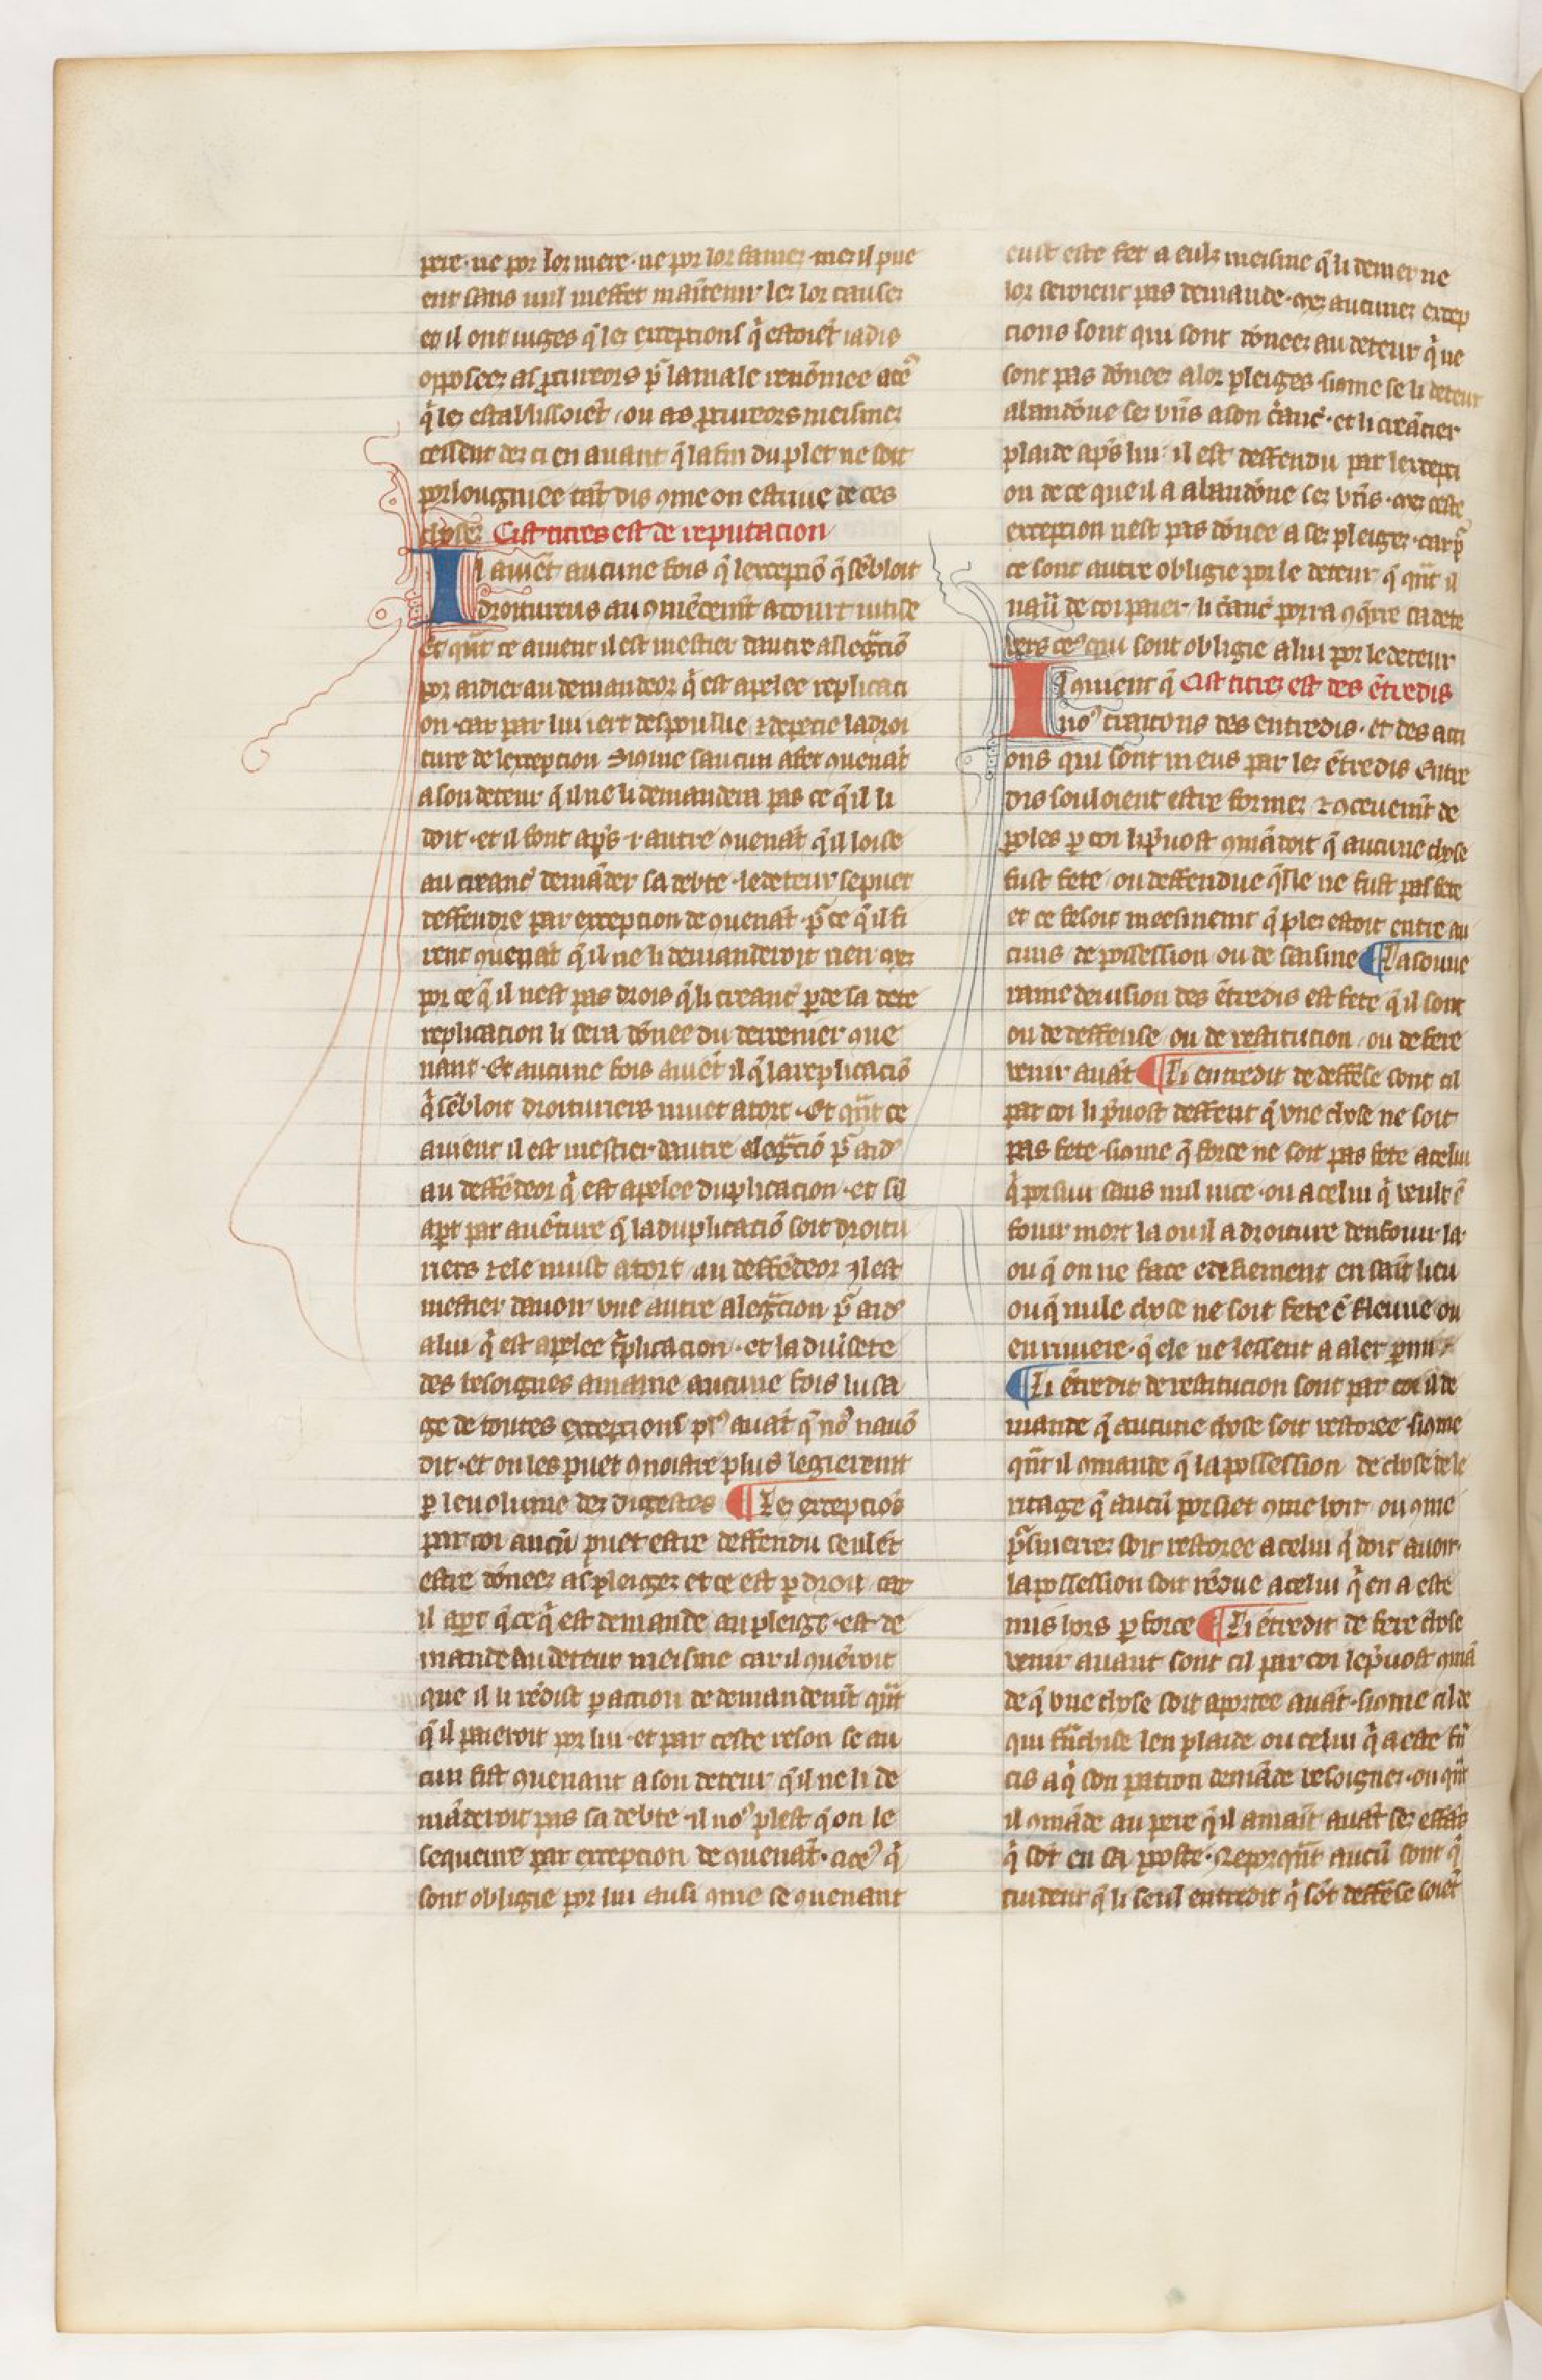 pere · ne por lor mere · ne por lor fames · mes il pue
ent sans nul meffet maītenir les lor causes
et il ont iuges q̄ les exceptions q̄ estoiēt iadis
opposees as ꝓcureors p̄ la male renōmee
q̄ les establissoiēt / ou as ꝓcureors meismes
cessent des ci en auant q̄ la fin du plet ne soit
porlougniee tāt dis ꝯme on estriue de ces
choses Cist titres est de reputacion
Il auiēt aucune fois q̄ lexceptiō q̄ sēbloit
droiturieus au ꝯmēcemt̄ a tourt nuise
et qn̄t ce auient il est mestier dautre allegaciō
por aidier au demandeor q̄ est apelee replicaci
on · car par lui iert despoullie ⁊ depecie la droi
ture de lexcepcion Siꝯme saucun a fet ꝯuenāt
a son deteur q̄ il ne li demandera pas ce q̄ il li
doit · et il font ap̄s · ⁊ autre ꝯuenāt q̄ il loise
au creanc̄ demāder sa debte · le deteur se puet
deffendre par excepcion de ꝯuenāt · p̄ ce q̄ il fi
rent ꝯuenāt q̄ il ne li demanderoit rien · mes
por ce q̄ il nest pas drois q̄ li creanc̄ ꝑde sa dete
replication li sera dōnee du derrenier ꝯue
nant · Et aucune fois auiēt il q̄ la replicaciō
q̄ sēbloit droituriers nuiet a tort · Et qn̄t ce
auient il est mestier dautre alegaciō p̄ aid᷒
au deffēdeor q̄ est apelee duplicacion · et sil
apt̄ par auēture q̄ la duplicatiō soit droitu
riers ⁊ ele nuist a tort · au deffēdeor il est
mestier dauoir vne autre alegacion p̄ aid᷒
a lui q̄ est apelee t̄plicacion · et la diuisete
des besoignes amaine aucune fois lusa
ge de toutes exceptions pl᷒ auāt q̄ no᷒ nauō
dit · et on les puet ꝯnoistre plus legierent
ꝑ le volume des digestes ¶ Les exceptiōs
par coi aucū puet estre deffendu seulēt
estre dōnees as pleiges et ce est ꝑ droit car
il apt̄ q̄ ce q̄ est demande au pleige · est de
mande au deteur meisme car il ꝯuēroit
que il li rēdist ꝑ action de demandemt̄ qn̄t
q̄ il paieroit por lui · et par ceste reson se au
cun fist ꝯuenant a son deteur q̄ il ne li de
māderoit pas sa debte · il no᷒ plest q̄ on le
sequeure par excepcion de ꝯuenāt · a ce᷒ q̄
sont obligie por lui ausi ꝯme se ꝯuenant
eust este fet a eulz meisme q̄ li denier ne
lor seroient pas demande · mes aucunes excep
cions sont qui sont dōnees au deteur q̄ ne
sont pas dōnees a lor pleiges · siꝯme se li deteur
abandōne ses biēs a son c̄anc̄ · et li creācier
plaide ap̄s lui · il est deffendu par lexcepti
on de ce que il a abandōne ses biēs · mes ceste
excepcion nest pas dōnee a ses pleiges · car p̄
ce sont autre obligie por le deteur q̄ qn̄t il
naū de coi paier · li c̄anc̄ porra ꝯq̄rre sa dete
vers ce᷒ qui sont obligie a lui por le deteur
Il ꝯuient q̄ Cist titres est des ētredis
no᷒ traitons des entredis · et des acti
ons qui sont meus par les ētredis Entre
dis souloient estre formes ⁊ ꝯceuemt̄ de
ꝑoles ꝑ coi li p̄uost ꝯmādoit q̄ aucune chose
fust fete / ou deffendue q̄le ne fust pas fete
et ce fesoit meesmemt̄ q̄ ples estoit entre au
cuns de possession ou de saisine ¶ La souue
raine deuision des ētredis est fete q̄ il sont
ou de deffense / ou de restitution / ou de fere
venir auāt ¶ Li entredit de deffēse sont cil
par coi li p̄uost deffent q̄ vne chose ne soit
pas fete · siꝯme q̄ force ne soit pas fete a celui
q̄ porsuit sans nul uice · ou a celui q̄ veult ē
fouir mort la ou il a droiture denfouir · la
ou q̄ on ne face edefiement en sāit lieu
ou q̄ nule chose ne soit fete ē fleuue ou
en riuiere · q̄ ele ne lessent a aler ꝑmi
¶ Li ētredit de restitucion sont par coi il de
mande q̄ aucune chose soit restoree · siꝯme
qn̄t il ꝯmande q̄ la possession de chose de le
ritage q̄ aucū porsiet ꝯme hoir · ou ꝯme
p̄suierres soit restoree a celui q̄ doit auoir ·
la possession soit rēdue a celui q̄ en a este
mis hors ꝑ force ¶ Li ētredit de fere chose
venir auant sont cil par coi le p̄uost ꝯmā
de q̄ vne chose soit aportee auāt · siꝯme cil de
qui frāchise len plaide ou celui q̄ a este frā
cis a q̄ son patron demāde besoignes · ou qn̄t
il ꝯmāde au pere q̄ il amaīt auāt ses effās
q̄ sōt en sa poste · Neporqn̄t aucū sont q̄
cuident q̄ li seul entredit q̄ sōt deffēse soiēt